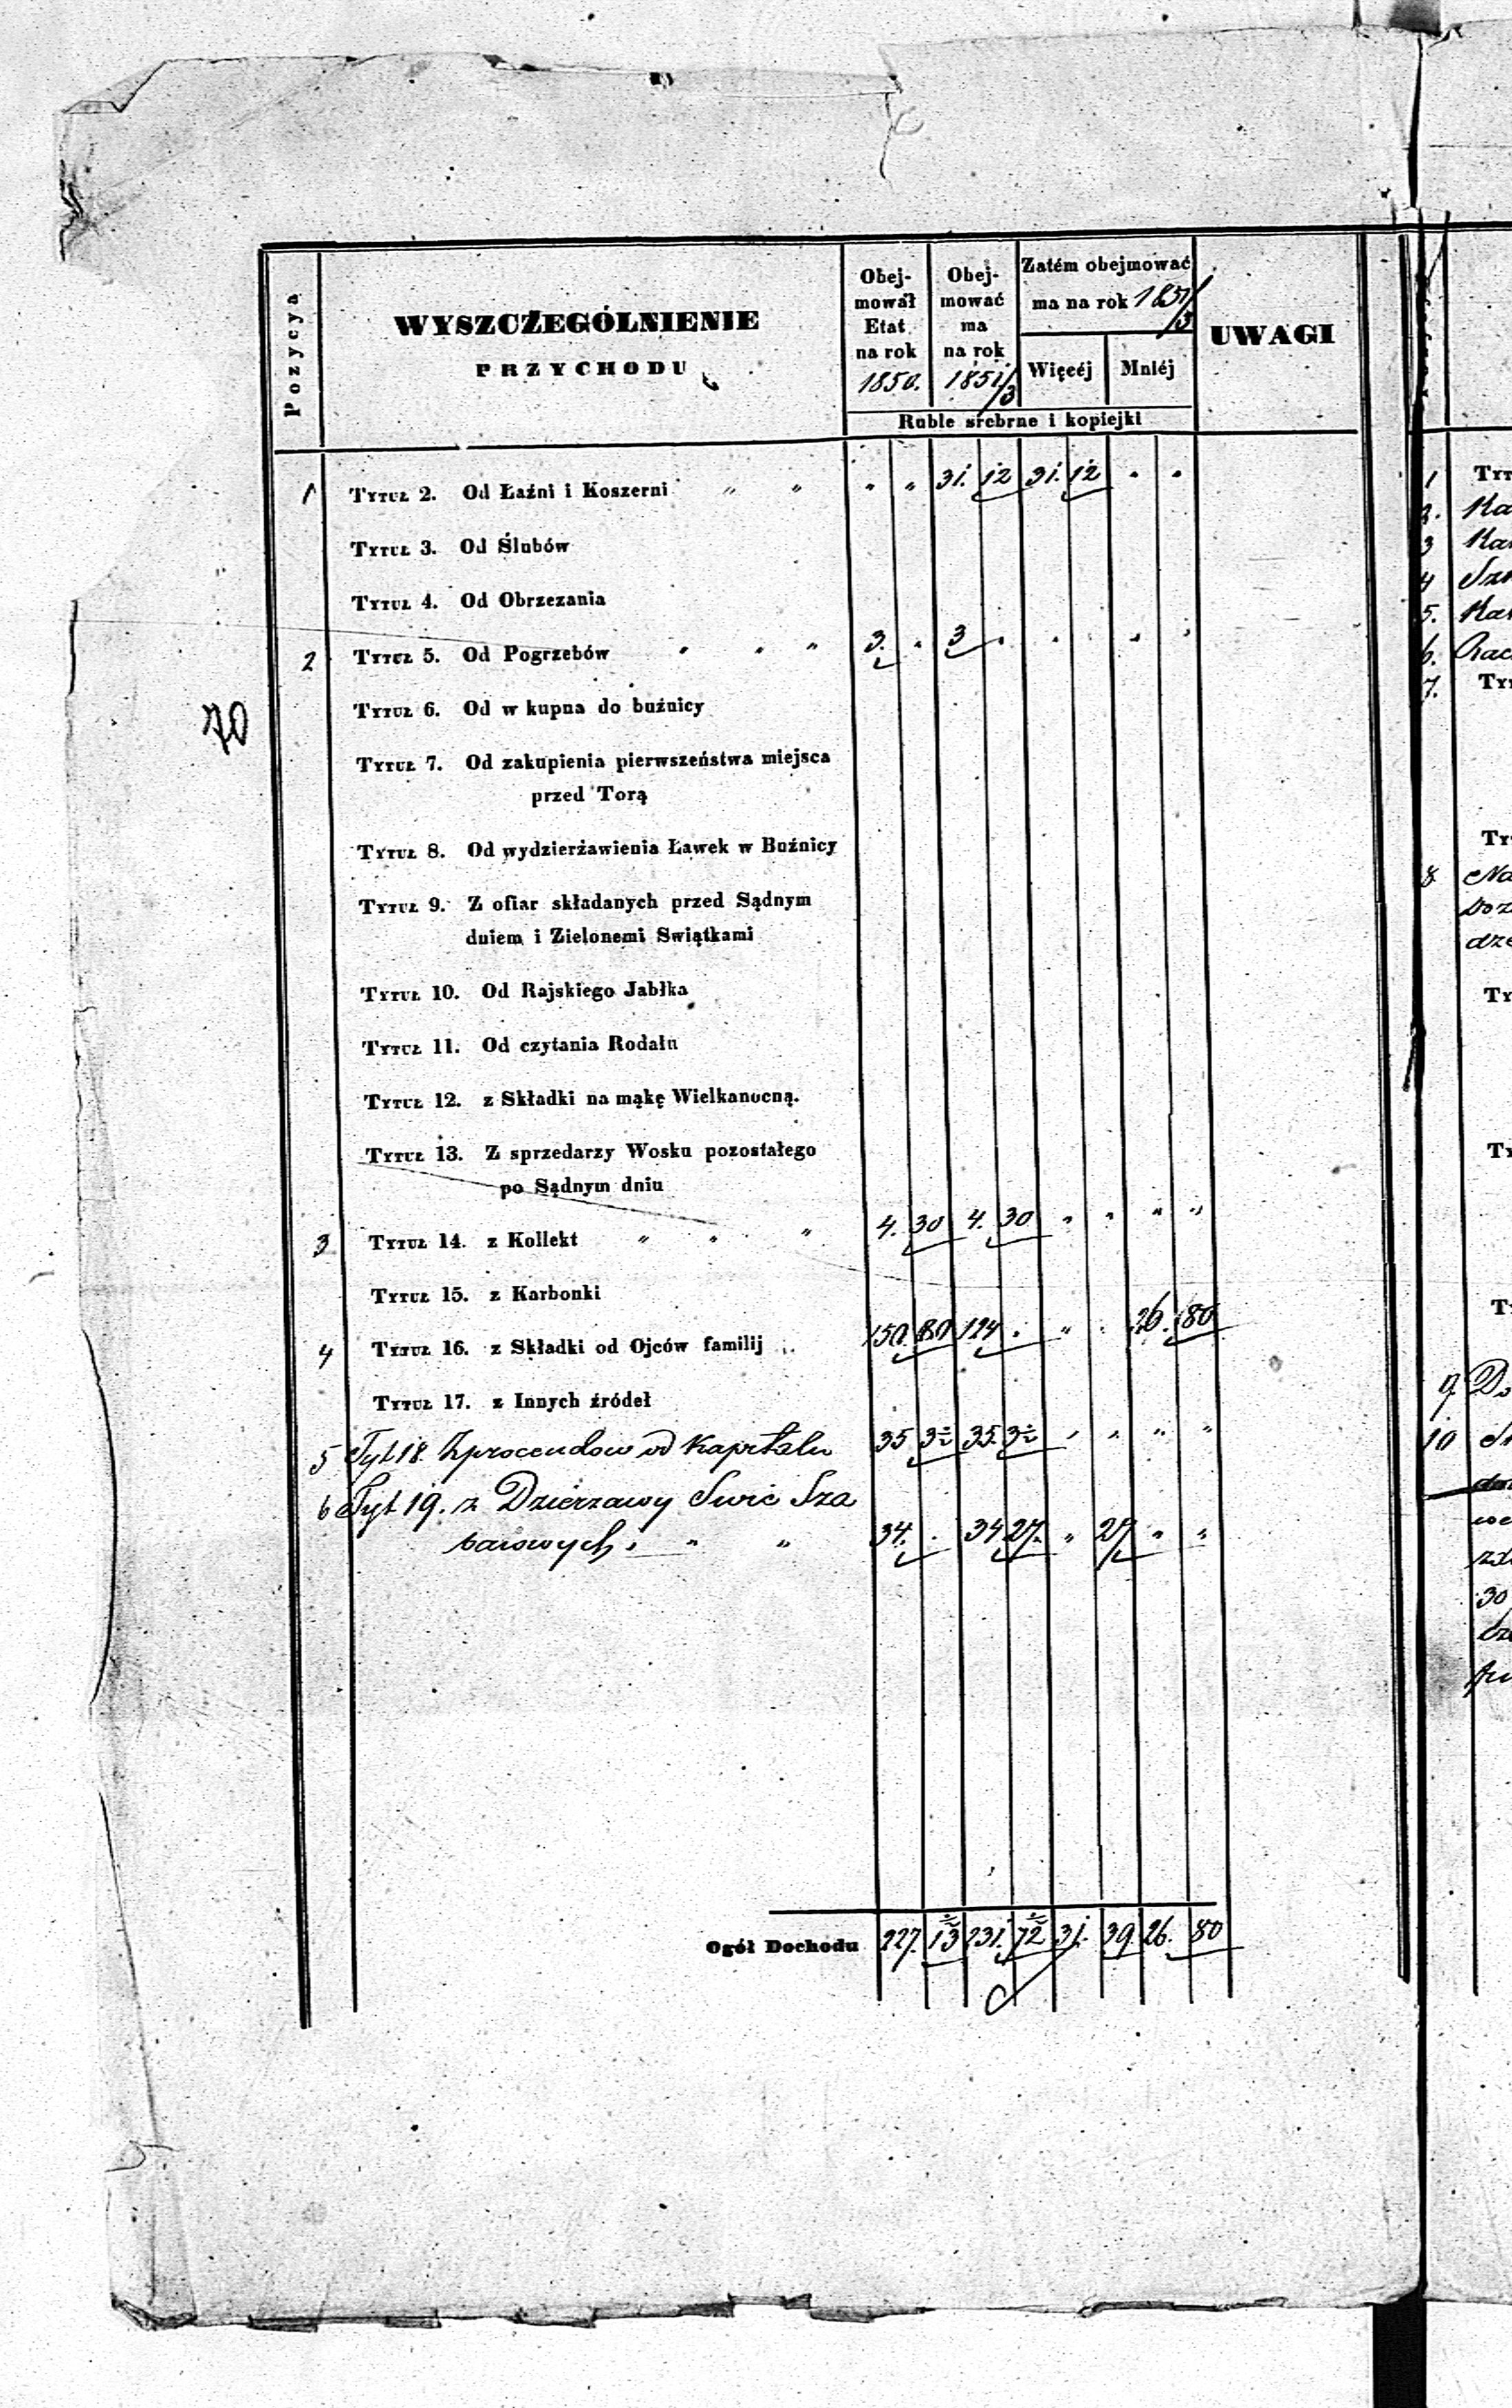 Pozycya
WYSZCZEGÓLNIENIE
PRZYCHODU
Obej-
mował
Etat
na rok
1850.
Obej-
mować
ma
na rok
1851/3
Zatém obejmować
ma na rok 1851/3
Więcéj
Mniéj
UWAGI
Ruble srebrne i kopiejki
1 Tytuł 2. Od Łaźni i Koszerni " " " " 31. 12 31. 12 " "
Tytuł 3. Od Ślubów
Tytuł 4. Od Obrzezania
2 Tytuł 5. Od Pogrzebów " " " 3. " 3 " " " " "
70
Tytuł 6. Od w kupna do buźnicy
Tytuł 7. Od zakupienia pierwszeństwa miejsca
przed Torą
Tytuł 8. Od wydzierżawienia Ławek w Buźnicy
Tytuł 9. Z ofiar składanych przed Sądnym
dniem i Zielonemi Swiątkami
Tytuł 10. Od Rajskiego Jabłka
Tytuł 11. Od czytania Rodału
Tytuł 12. z Składki na mąkę Wielkanocną.
Tytuł 13. Z sprzedarzy Wosku pozostałego
po Sądnym dniu
3 Tytuł 14. z Kollekt " " " 4. 30 4. 30 " " " "
Tytuł 15. z Karbonki
4 Tytuł 16. z Składki od Ojców familij 150. 80 124 . " . 26. 80
Tytuł 17. z Innych źródeł
5 Tyt 18. Z procendow od Kapitału 35 3½ 35. 3½ " " " "
6 Tyt 19. z Dzierzawy Swic Sza
basowych " " 34. . 34 27. " 27 " "
Ogół Dochodu 227. 13½ 231. 72½ 31. 39. 26. 80
1
2.
3
4
5.
6.
7.
8
9.
10
30